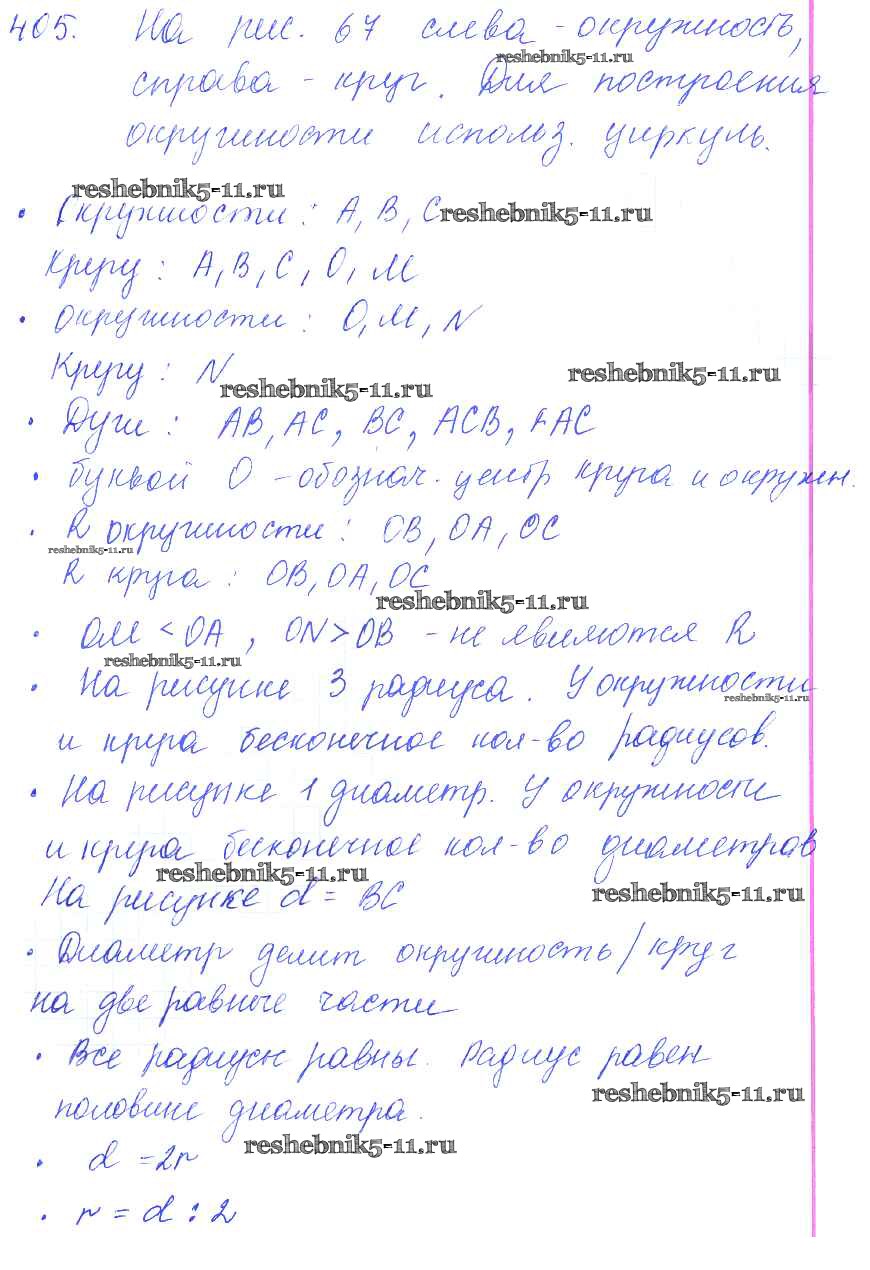 405. На рис. 67 слева - окружность,
reshebnik5-11.ru
справа - круг. Для построения
окружности использ. циркуль.
reshebnik5-11.ru
• Окружности : А, В, С reshebnik5-11.ru
Кругу : А, В, С, О, М
• Окружности : О, М, N
Кругу : N
reshebnik5-11.ru
reshebnik5-11.ru
• Дуги : АВ, АС, ВС, АСВ, FАС
• буквой О - обознач. центр круга и окружн.
• R окружности : ОВ, ОА, ОС
reshebnik5-11.ru
R круга : ОВ, ОА, ОС
reshebnik5-11.ru
• ОМ < ОА , ОN > ОВ - не являются R
reshebnik5-11.ru
• На рисунке 3 радиуса. У окружности
reshebnik5-11.ru
и круга бесконечное кол-во радиусов.
• На рисунке 1 диаметр. У окружности
и круга бесконечное кол-во диаметров
reshebnik5-11.ru
На рисунке d = ВС
reshebnik5-11.ru
• Диаметр делит окружность/круг
на две равные части
• Все радиусы равны. Радиус равен
reshebnik5-11.ru
половине диаметра.
reshebnik5-11.ru
• d = 2r
• r = d : 2